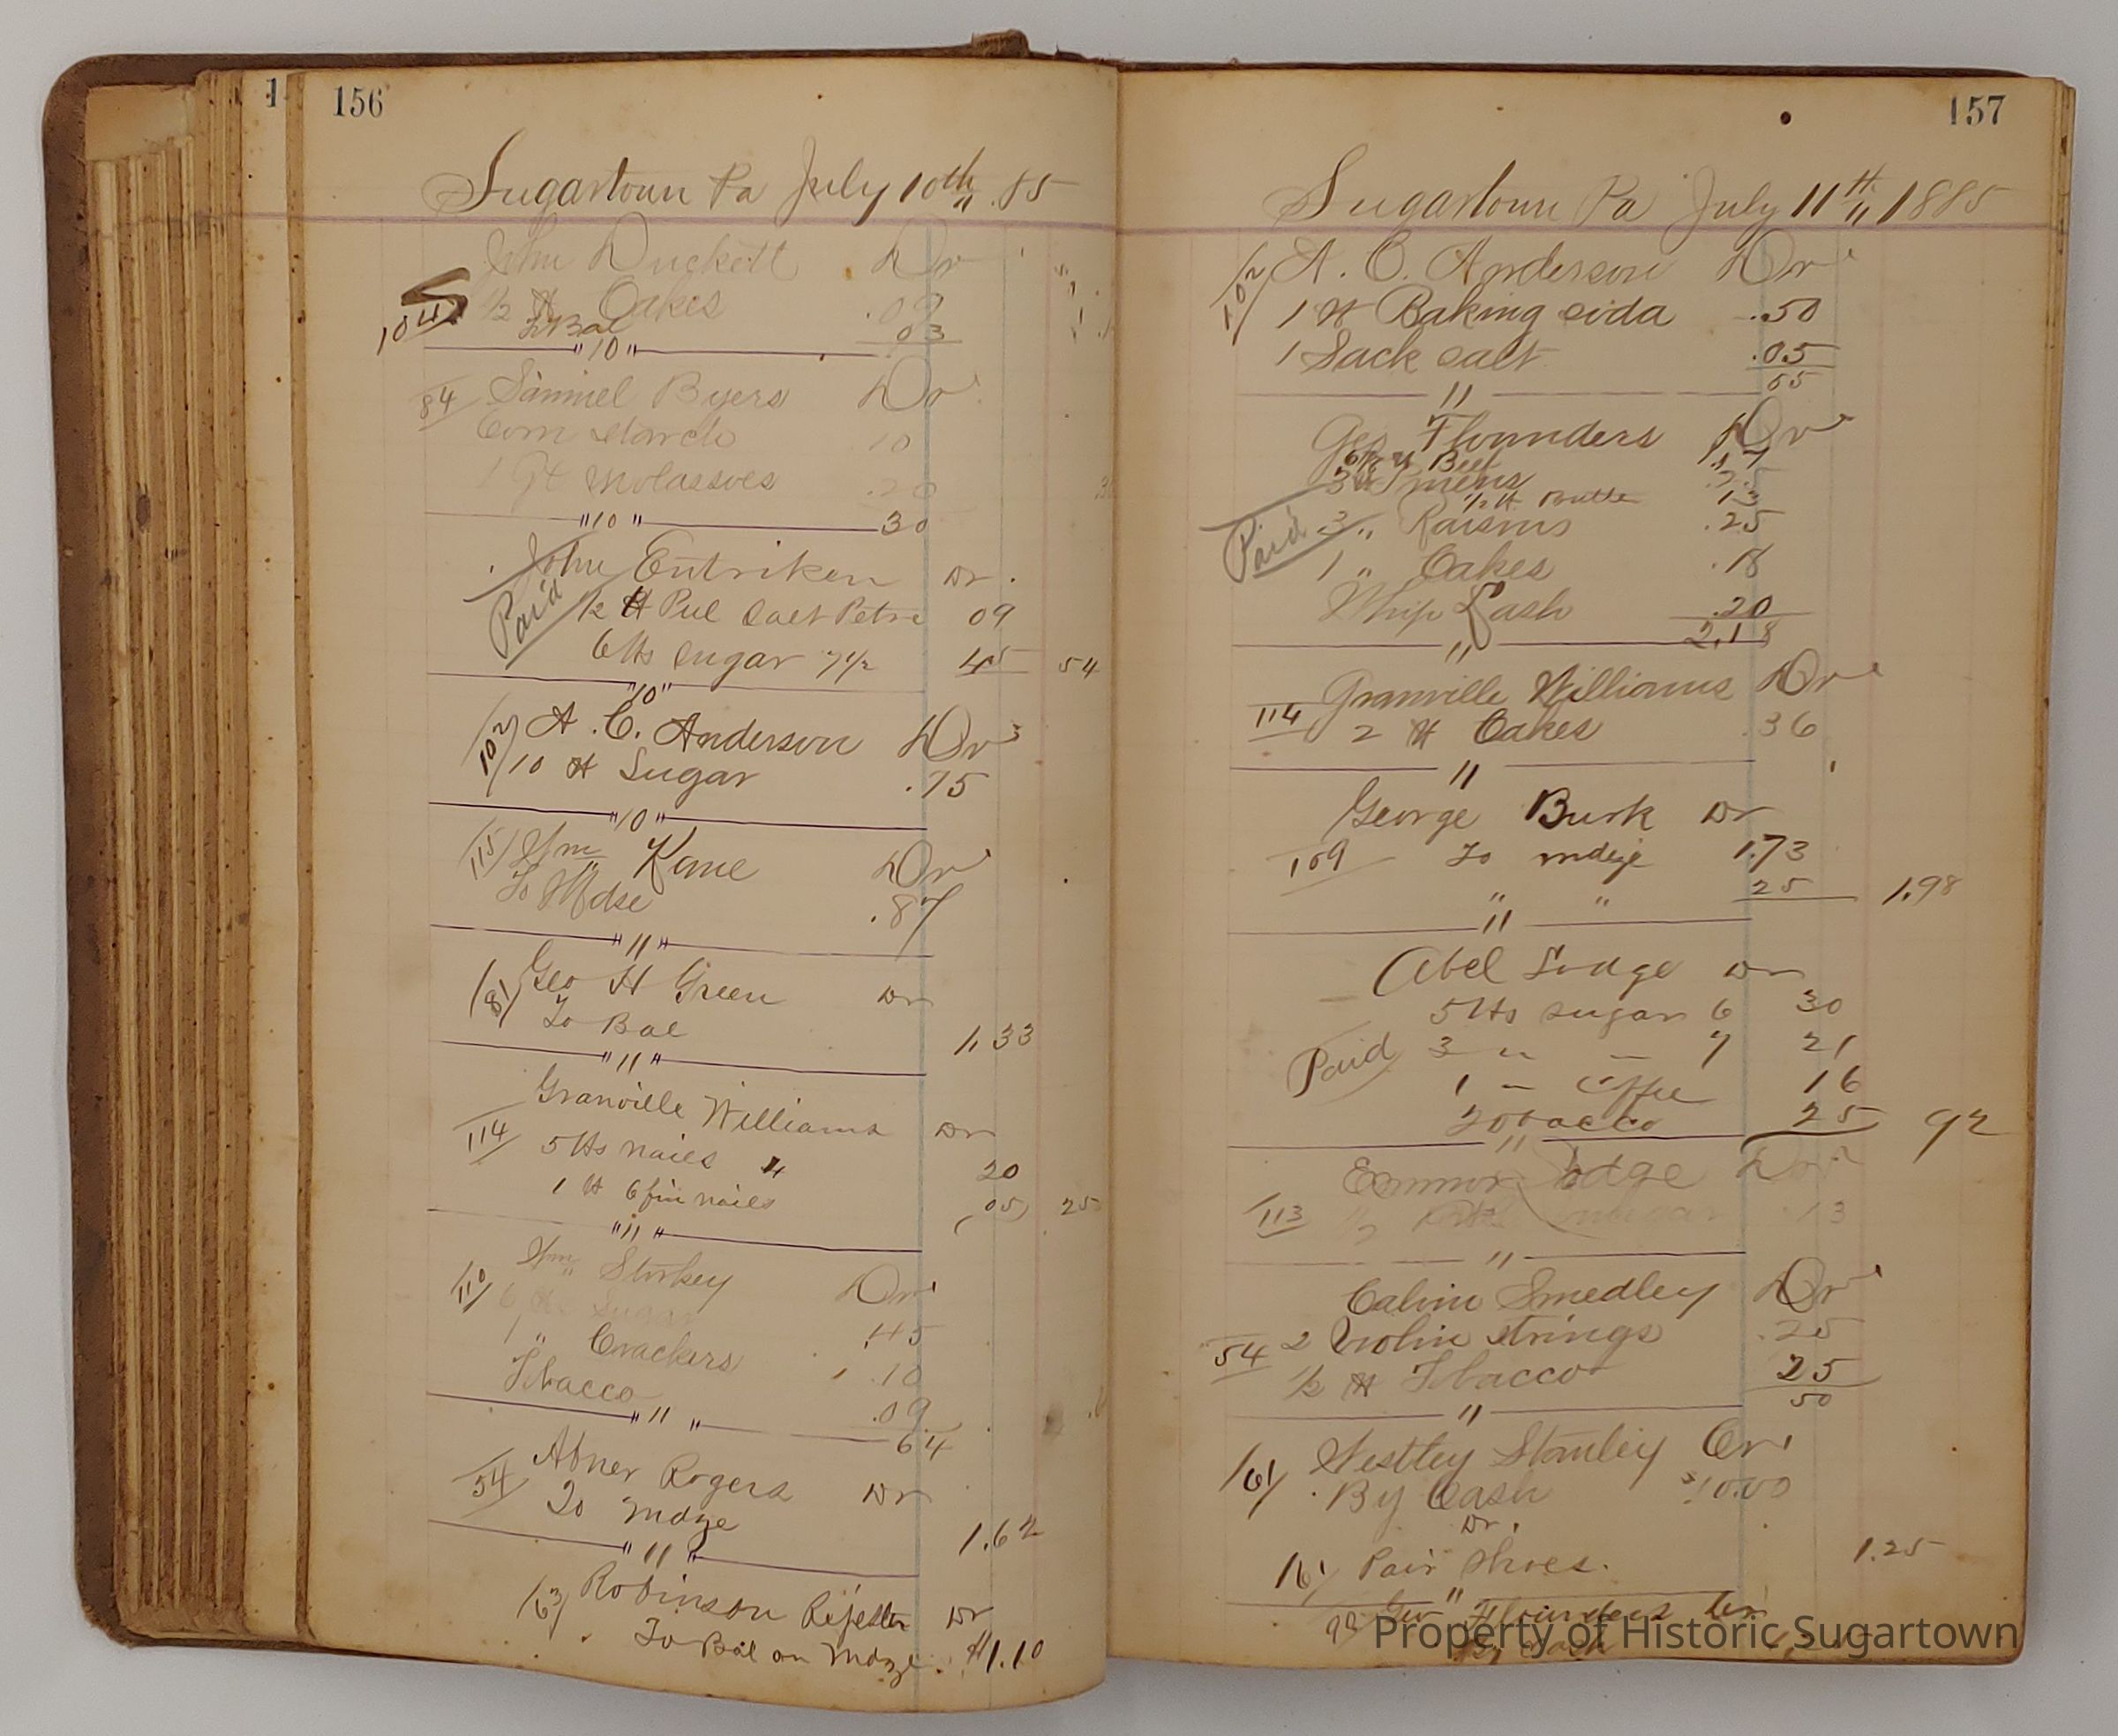 1
156
Sugartown Pa July 10th " .85
John Duckett Dr
104
1/2 # Cakes .09
To Bal 03
" 10 "
84 Samuel Byers Dr
Corn starch 10
1 Qt Molassoes .20
" 10 " 30
John Entriken Dr.
Paid
1/2 # Pul Salt Petre 09
6 lbs Sugar 7 1/2 45 54
" 10 "
102 A. C. Anderson Dr
10 # Sugar .75
" 10 "
115 Wm Kane Dr
To Mdse .87
" 11 "
81 Geo H Green Dr
To Bal 1.33
" 11 "
Granville Williams Dr
114
5 lbs nails 4 20
1 # 6 fin nails 05 25
" 11 "
Wm Storkey Dr
110
6 # Sugar
1 " Crackers .45
Tobacco .10
" 11 " .09
64
Abner Rogers Dr
54
To Mdze 1.62
" 11 "
163 Robinson Dr
To Bal on Mdze. $1.10
157
Sugartown Pa July 11th " 1885
102 A. C. Anderson Dr
1 # Baking soida .50
1 Sack salt .05
55
11
Geo Flounders Dr
Beef
3 #
1/2 # Butter 13
Paid 3 " Raisins .25
1 " Cakes .18
Whip Lash .20
11 2.18
Granville Williams Dr
114 2 # Cakes .36
11
George Burk Dr
109 To mdze 1.73
" " 25 1.98
11
Abel Lodge Dr
5 lbs sugar 6 30
Paid 3 " — 7 21
1 — Coffee 16
Tobacco 25 92
11
Emmor Lodge Dr
113 vinegar .13
11
Calvin Smedley Dr
2 Violin strings .25
54
1/2 # Tobacco 25
11 50
161 Westley Stanley Cr
By Cash $10.00
Dr.
161 Pair Shoes. 1.25
"
98 Geo Flounders Cr
By Cash
Property of Historic Sugartown